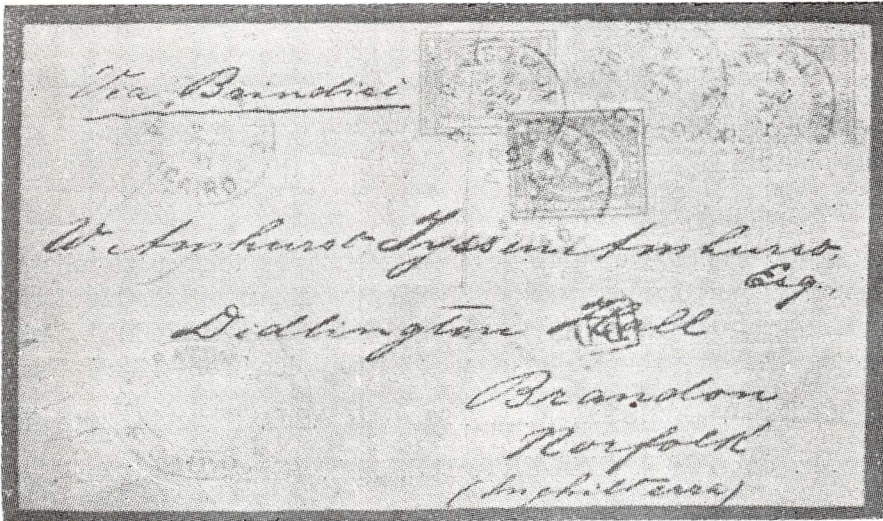 Via Brindisi
CAIRO
W. Amhurst Tyssen Amhurst,
Esq.,
Didlington Hall
Brandon
Norfolk
(Inghilterra)